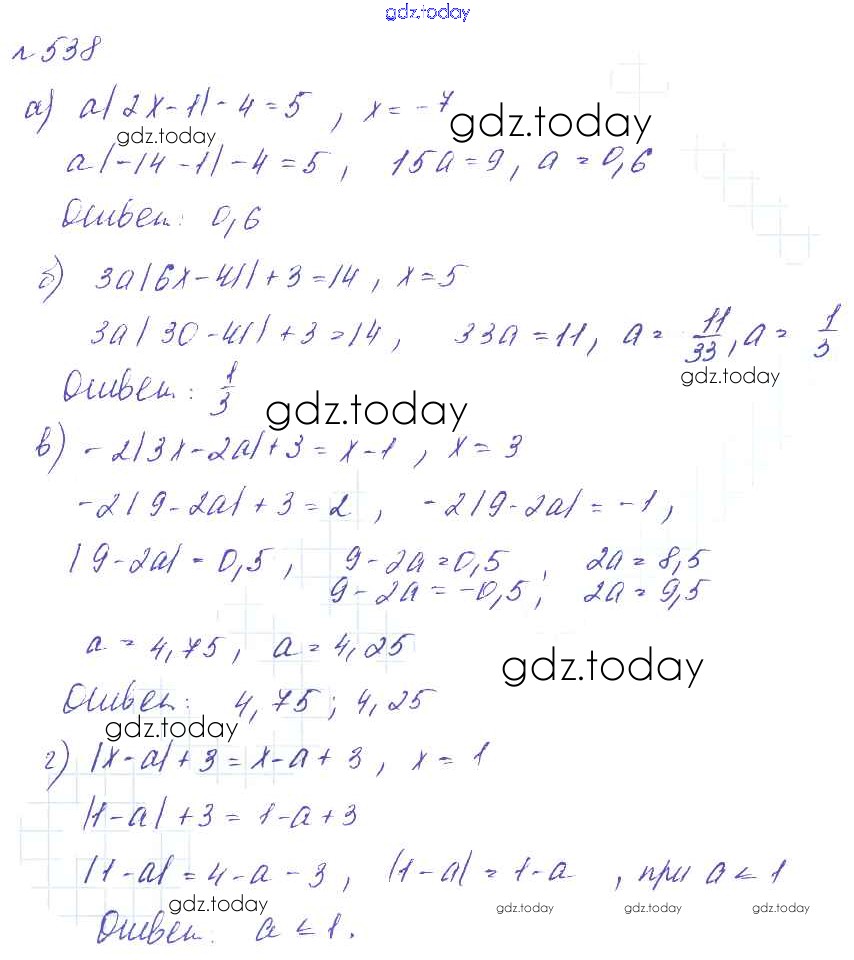 gdz.today
№538
а) a|2x-1|-4=5, x=-7
gdz.today gdz.today
a|-14-1|-4=5, 15a=9, a=0,6
Ответ: 0,6
б) 3a|6x-41|+3=14, x=5
3a|30-41|+3=14, 33a=11, a=11/33, a=1/3
gdz.today
Ответ: 1/3
gdz.today
в) -2|3x-2a|+3=x-1, x=3
-2|9-2a|+3=2, -2|9-2a|=-1,
|9-2a|=0,5, 9-2a=0,5, 2a=8,5
9-2a=-0,5; 2a=9,5
a=4,75, a=4,25
gdz.today
Ответ: 4,75; 4,25
gdz.today
г) |x-a|+3=x-a+3, x=1
|1-a|+3=1-a+3
|1-a|=4-a-3, |1-a|=1-a, при a≤1
gdz.today gdz.today gdz.today gdz.today
Ответ: a≤1.